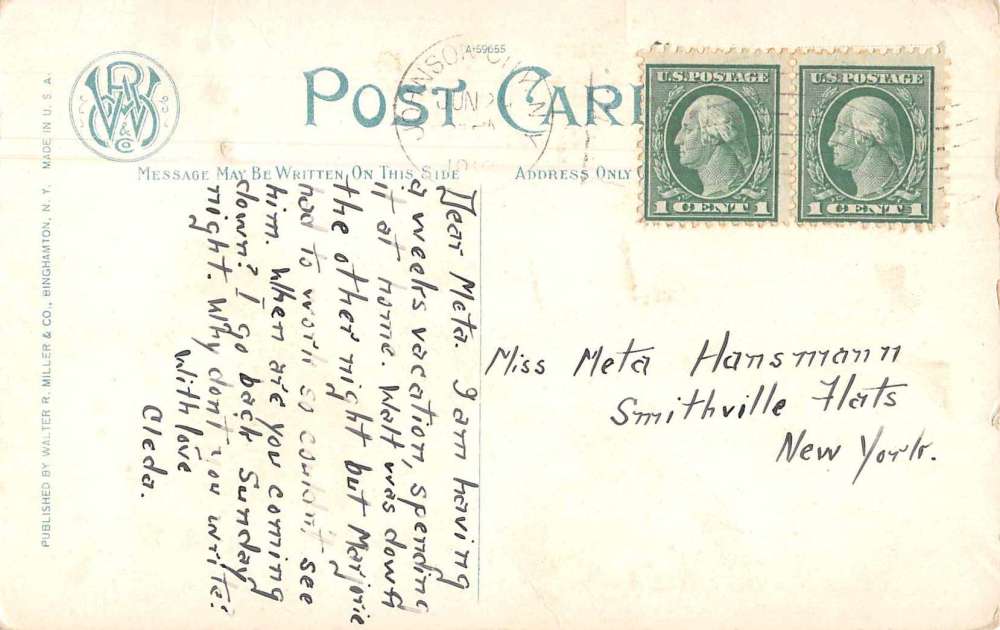 A-59655
POST CARD
JOHNSON CITY N.Y.
JUN
U.S. POSTAGE
1 CENT 1
U.S. POSTAGE
1 CENT 1
WRM & CO
MESSAGE MAY BE WRITTEN ON THIS SIDE
ADDRESS ONLY
PUBLISHED BY WALTER R. MILLER & CO., BINGHAMTON, N. Y. MADE IN U. S. A.
Dear Meta. I am having
a weeks vacation, spending
it at home. Walt was down
the other night but Marjorie
had to work so couldn't see
him. When are you coming
down? I go back Sunday
night. Why don't you write?
With love
Cleda.
Miss Meta Hansmann
Smithville Flats
New York.